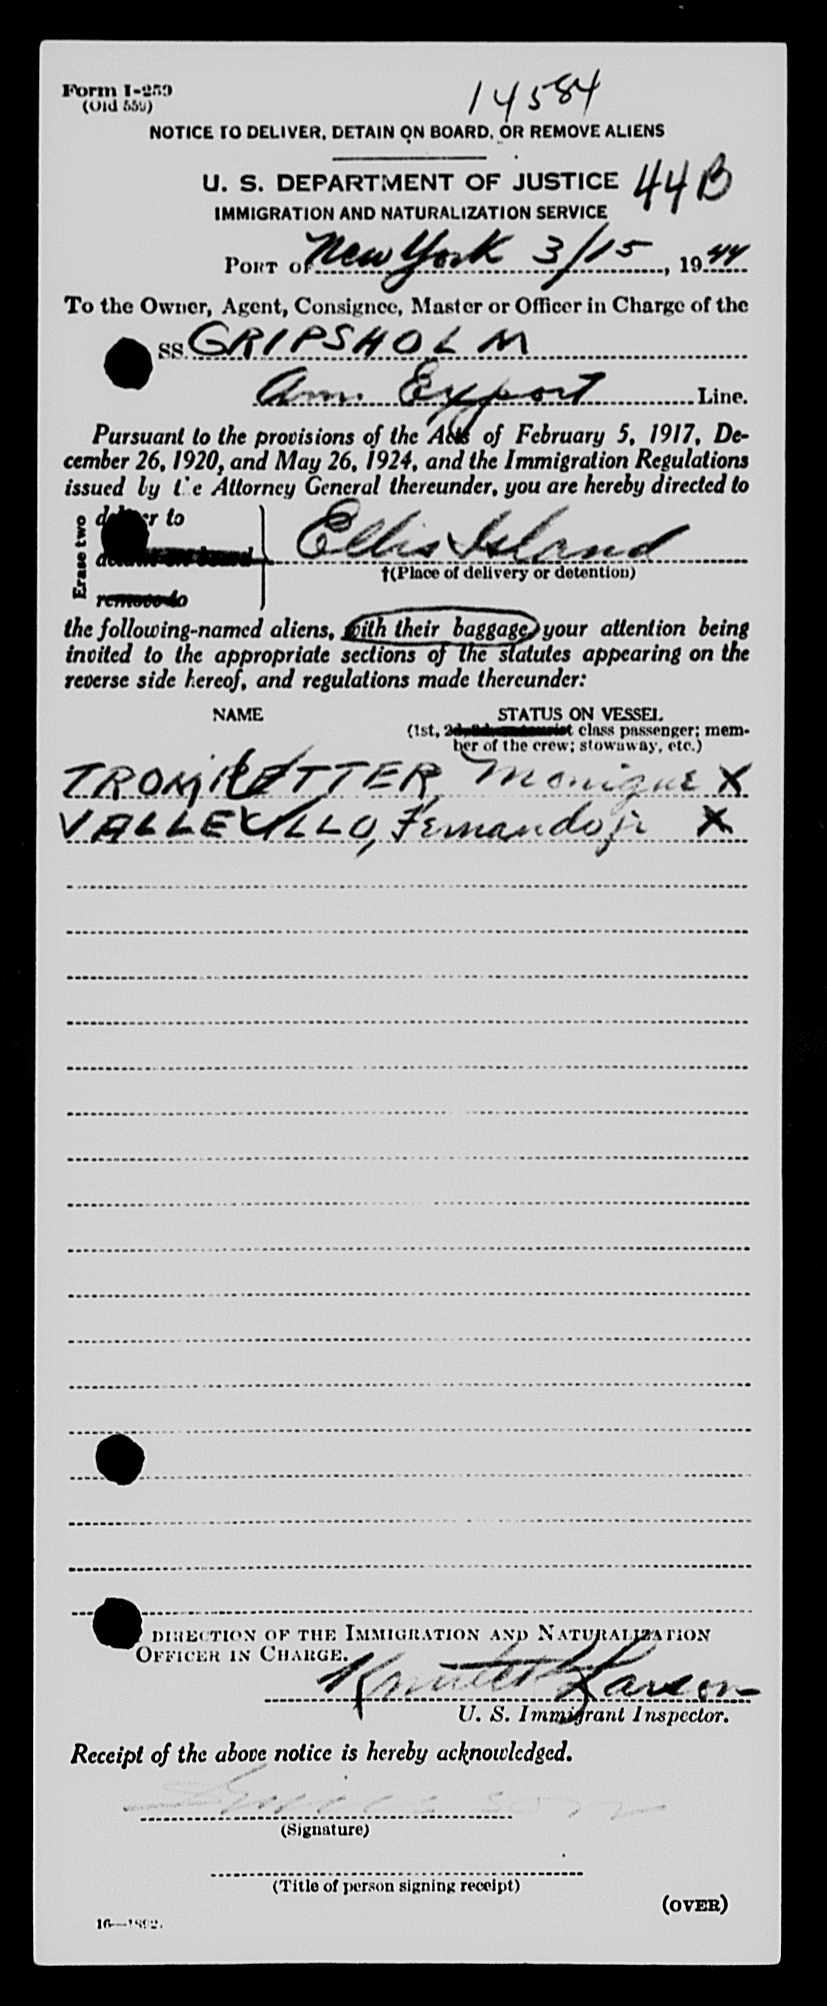 Form I-259
(Old 559)
14584
NOTICE TO DELIVER, DETAIN ON BOARD, OR REMOVE ALIENS
U. S. DEPARTMENT OF JUSTICE
44B
IMMIGRATION AND NATURALIZATION SERVICE
PORT OF New York 3/15, 1944
To the Owner, Agent, Consignee, Master or Officer in Charge of the
SS. GRIPSHOLM
Am. Export Line.
Pursuant to the provisions of the Acts of February 5, 1917, De-
cember 26, 1920, and May 26, 1924, and the Immigration Regulations
issued by the Attorney General thereunder, you are hereby directed to
Erase two
deliver to
detain on board
remove to
Ellis Island
†(Place of delivery or detention)
the following-named aliens, with their baggage, your attention being
invited to the appropriate sections of the statutes appearing on the
reverse side hereof, and regulations made thereunder:
NAME
STATUS ON VESSEL
(1st, class passenger; mem-
ber of the crew; stowaway, etc.)
Monique X
Fernando jr X
DIRECTION OF THE IMMIGRATION AND NATURALIZATION
OFFICER IN CHARGE.
Larson
U. S. Immigrant Inspector.
Receipt of the above notice is hereby acknowledged.
(Signature)
(Title of person signing receipt)
(OVER)